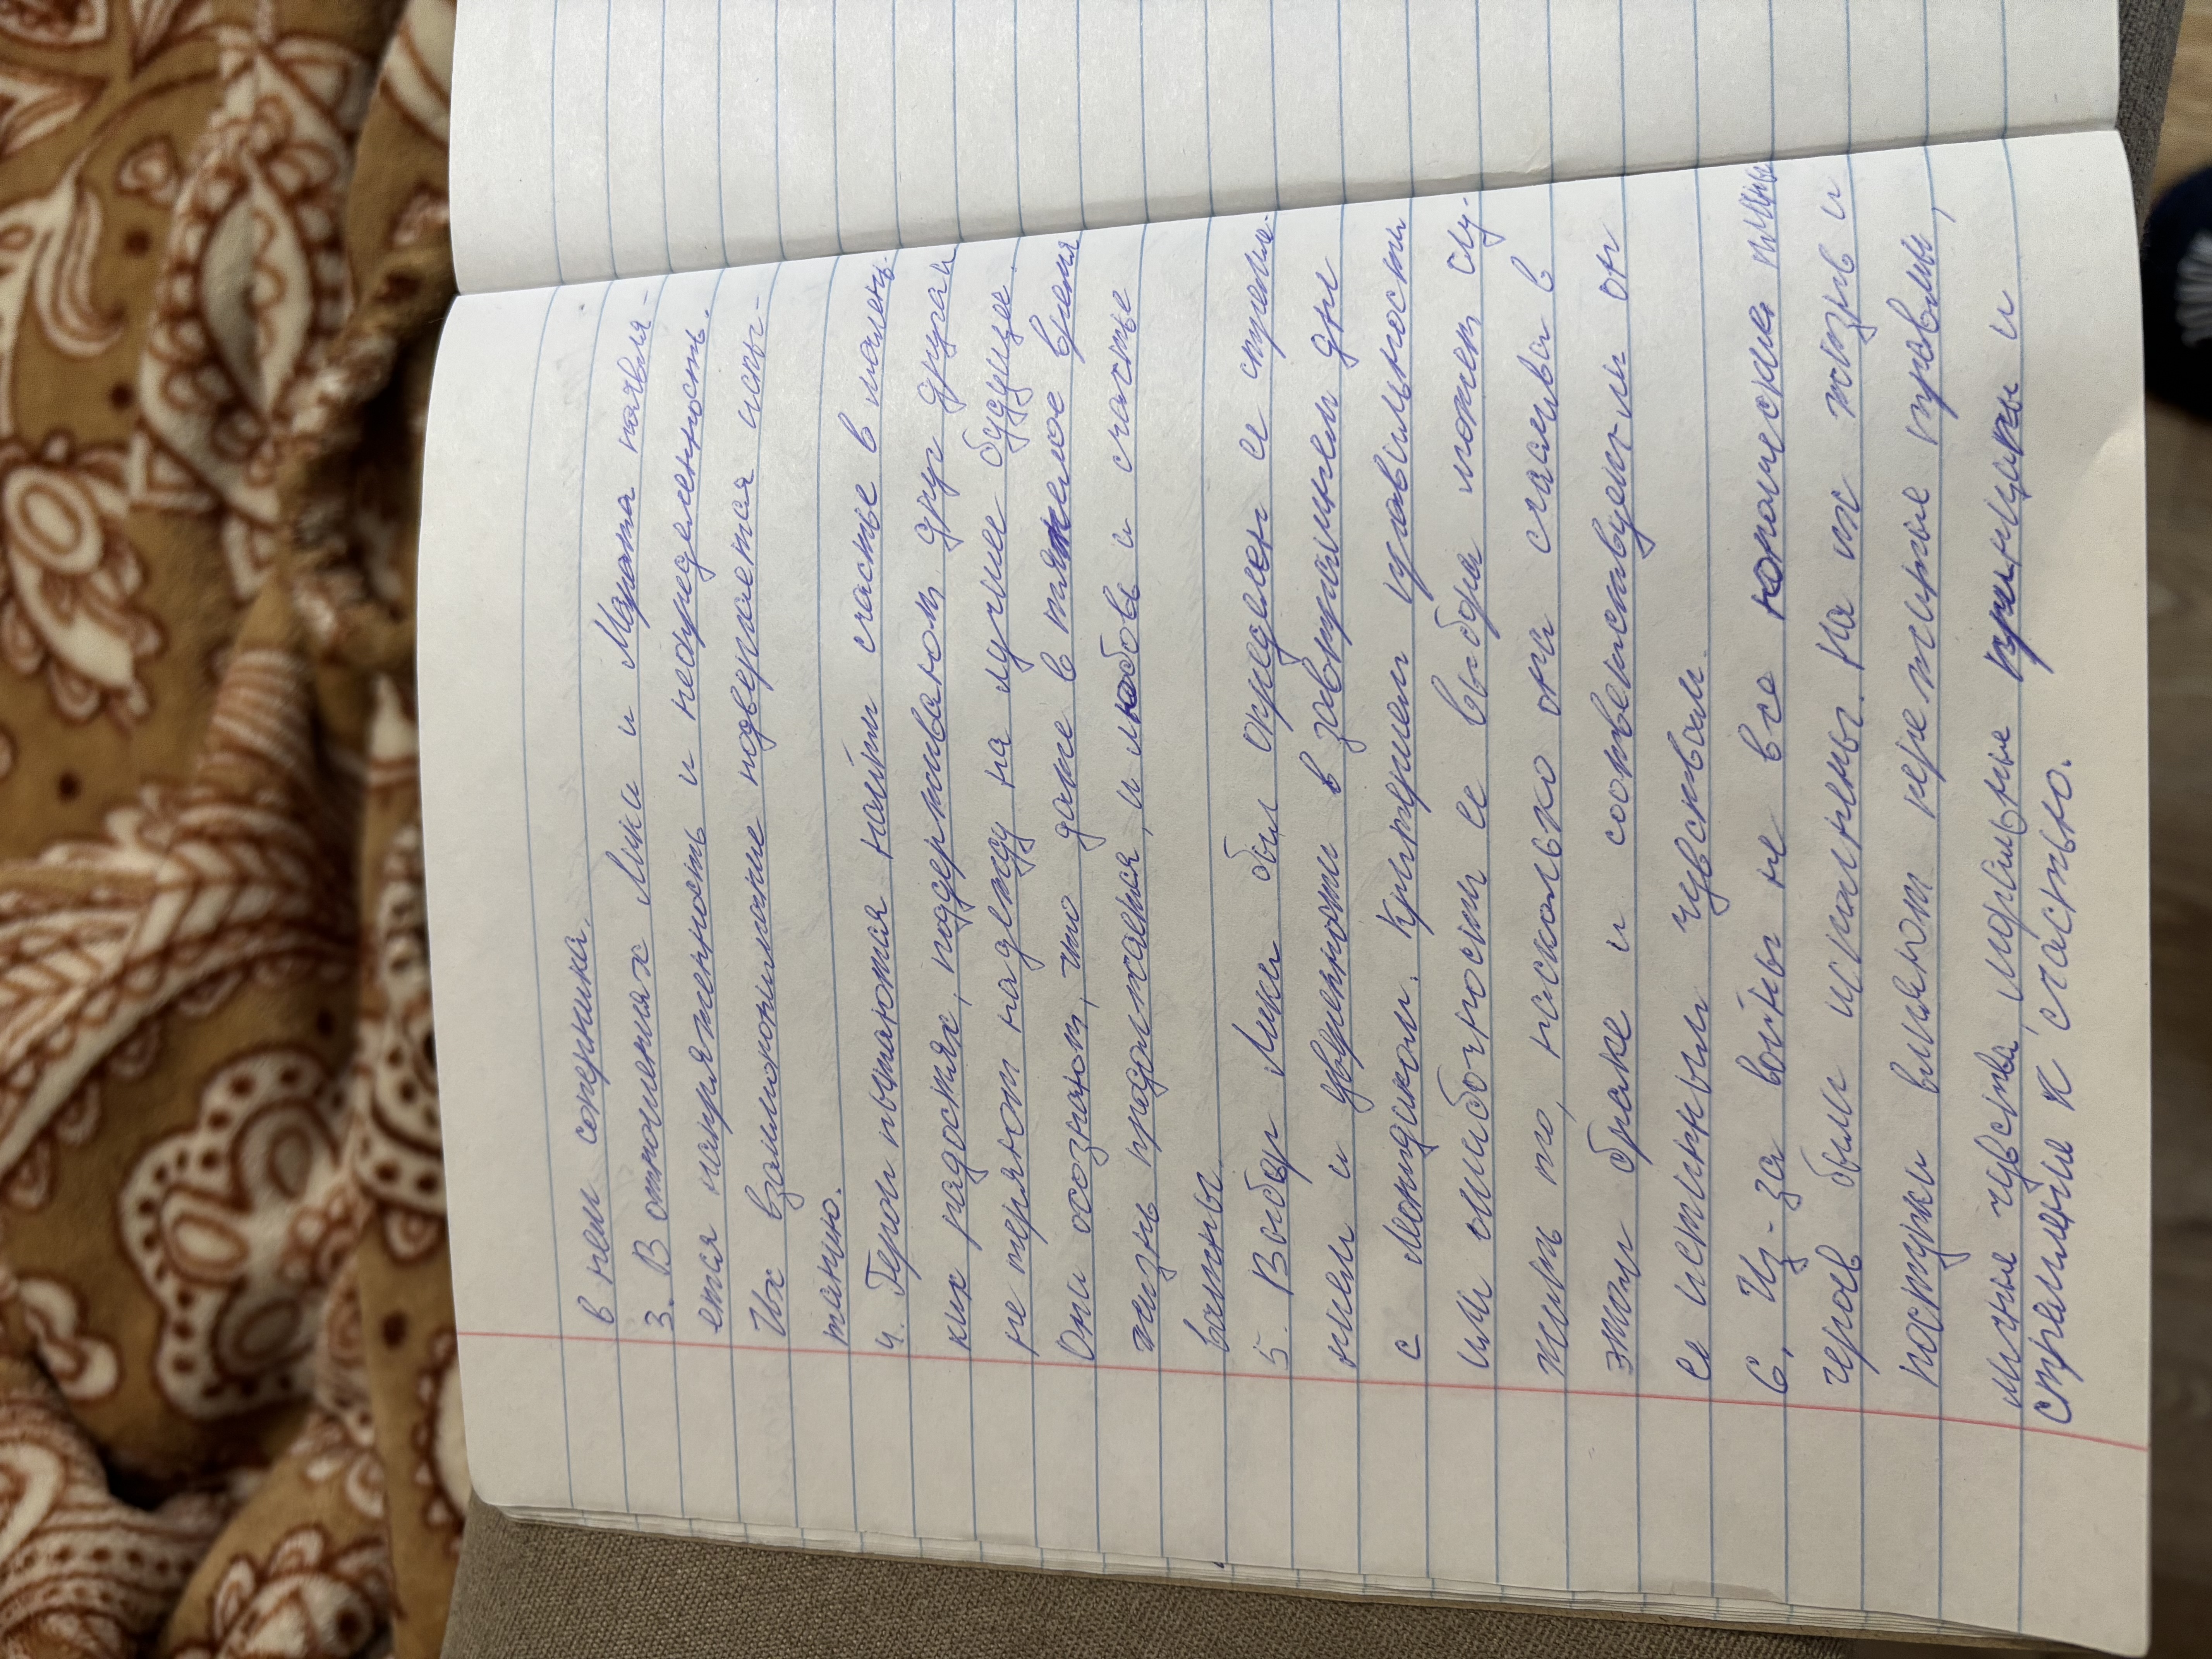 в нем соперника.
3. В отношениях Лики и Марата появля-
ется напряженность и неопределенность.
Их взаимопонимание подвергается испы-
танию.
4. Герои пытаются найти счастье в малень-
ких радостях, поддерживают друг друга и
не теряют надежду на лучшее будущее.
Они осознают, что даже в тяжелое время
жизнь продолжается, и любовь и счастье
важны.
5. Выбор Лики был определен ее стремле-
нием и уверенности в завтрашнем дне
с Леонидиком. Критерием правильности
или ошибочности ее выбора может слу-
жить то, насколько она счастлива в
этом браке и соответствует-ли он
ее истинным чувствам.
6. Из-за войны не все юношеские планы
героев были исполнены. На их жизнь и
поступки влияют пережитые травмы,
личные чувства, моральные принципы и
стремление к счастью.